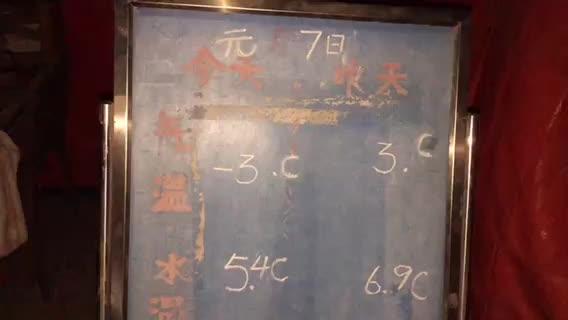 元月7日
今天 昨天
气温 -3.C 3.C
水温 5.4C 6.9C